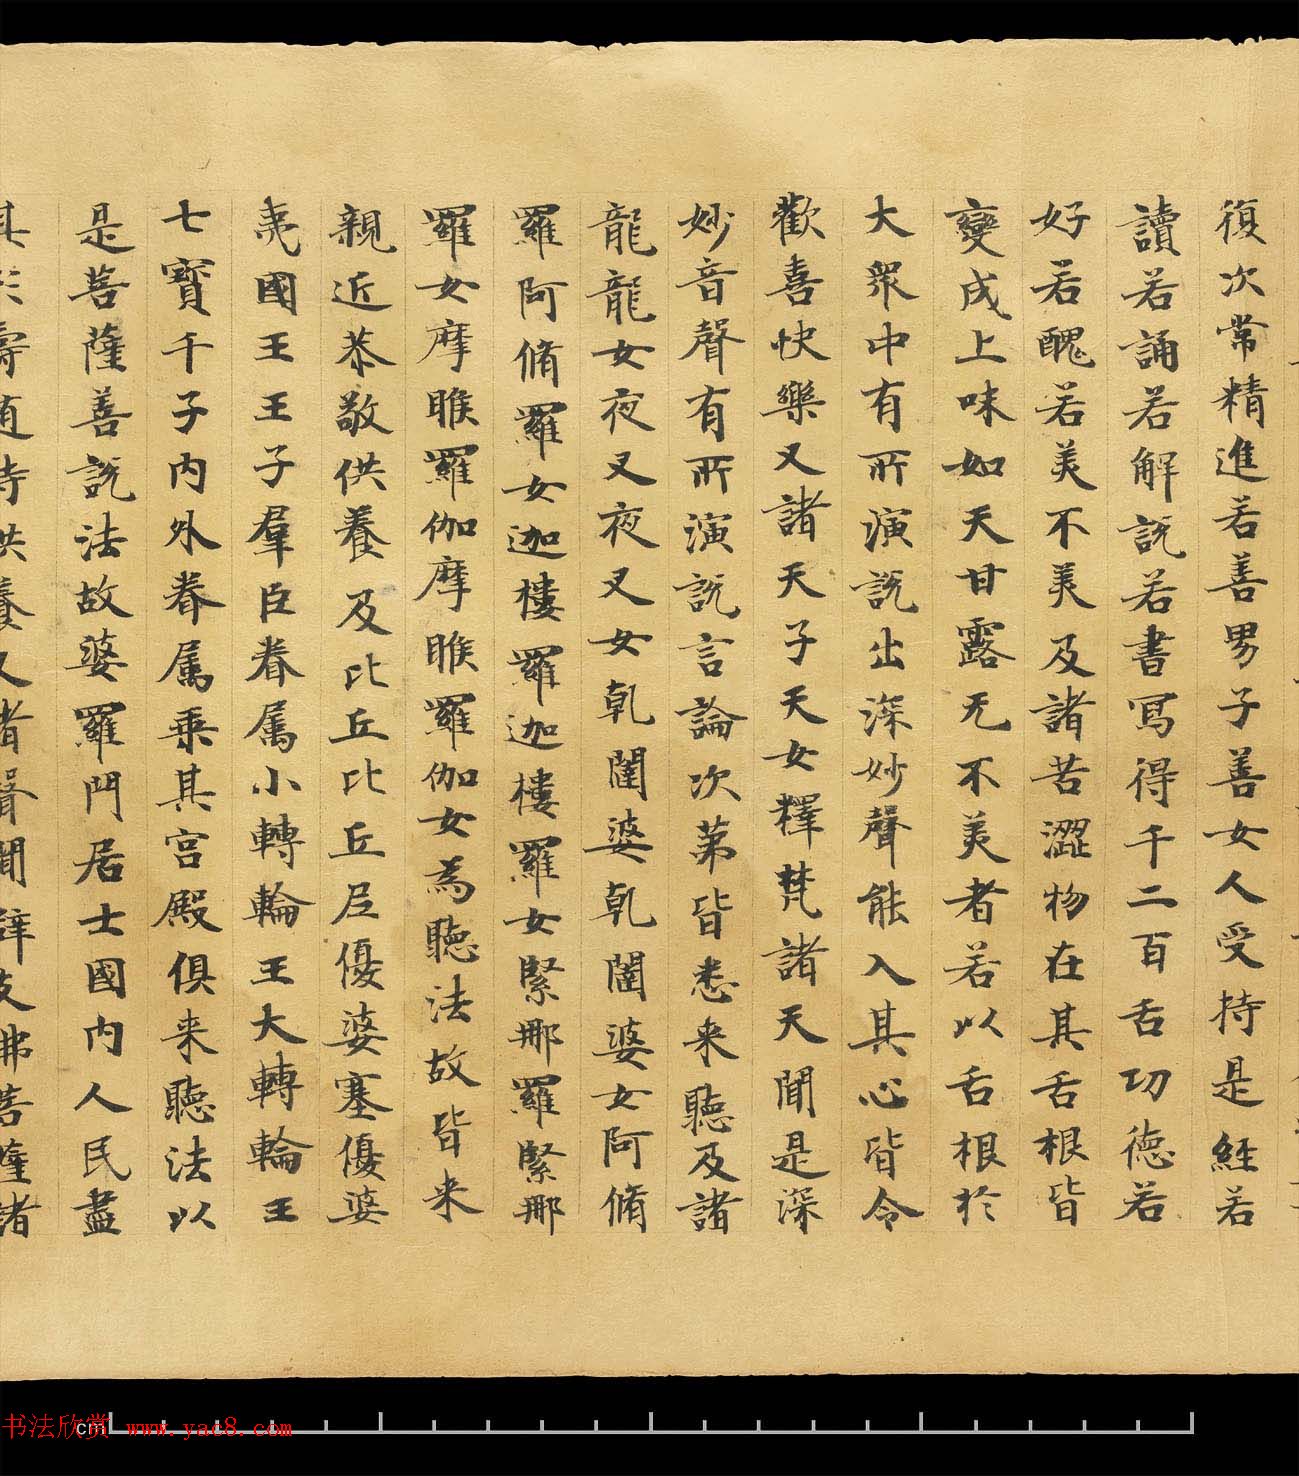 復次常精進若善男子善女人受持是經若
讀若誦若解說若書寫得千二百舌功德若
好若醜若美不美及諸苦澀物在其舌根皆
變成上味如天甘露无不美者若以舌根於
大衆中有所演說出深妙聲能入其心皆令
歡喜快樂又諸天子天女釋梵諸天聞是深
妙音聲有所演說言論次第皆悉来聽及諸
龍龍女夜叉夜叉女乹闥婆乹闥婆女阿脩
羅阿脩羅女迦樓羅迦樓羅女緊那羅緊那
羅女摩睺羅伽摩睺羅伽女為聽法故皆来
親近恭敬供養及比丘比丘尼優婆塞優婆
夷國王王子羣臣眷属小轉輪王大轉輪王
七寳千子内外眷属乗其宫殿俱来聽法以
是菩薩善說法故婆羅門居士國内人民盡
其形壽随侍供養又諸聲聞辟支佛菩薩諸
书法欣赏 www.yac8.com
cm